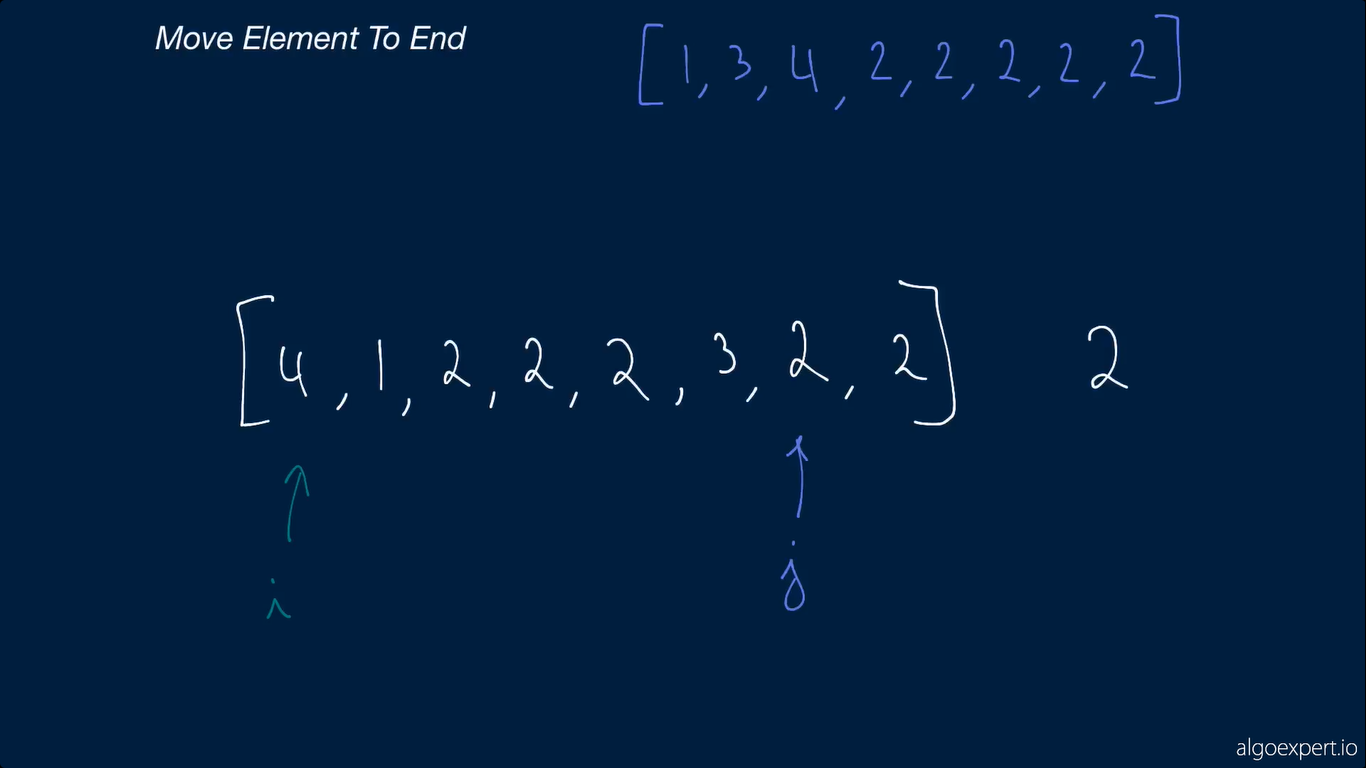 Move Element To End
[1, 3, 4, 2, 2, 2, 2, 2]
[4, 1, 2, 2, 2, 3, 2, 2] 2
i j
algoexpert.io